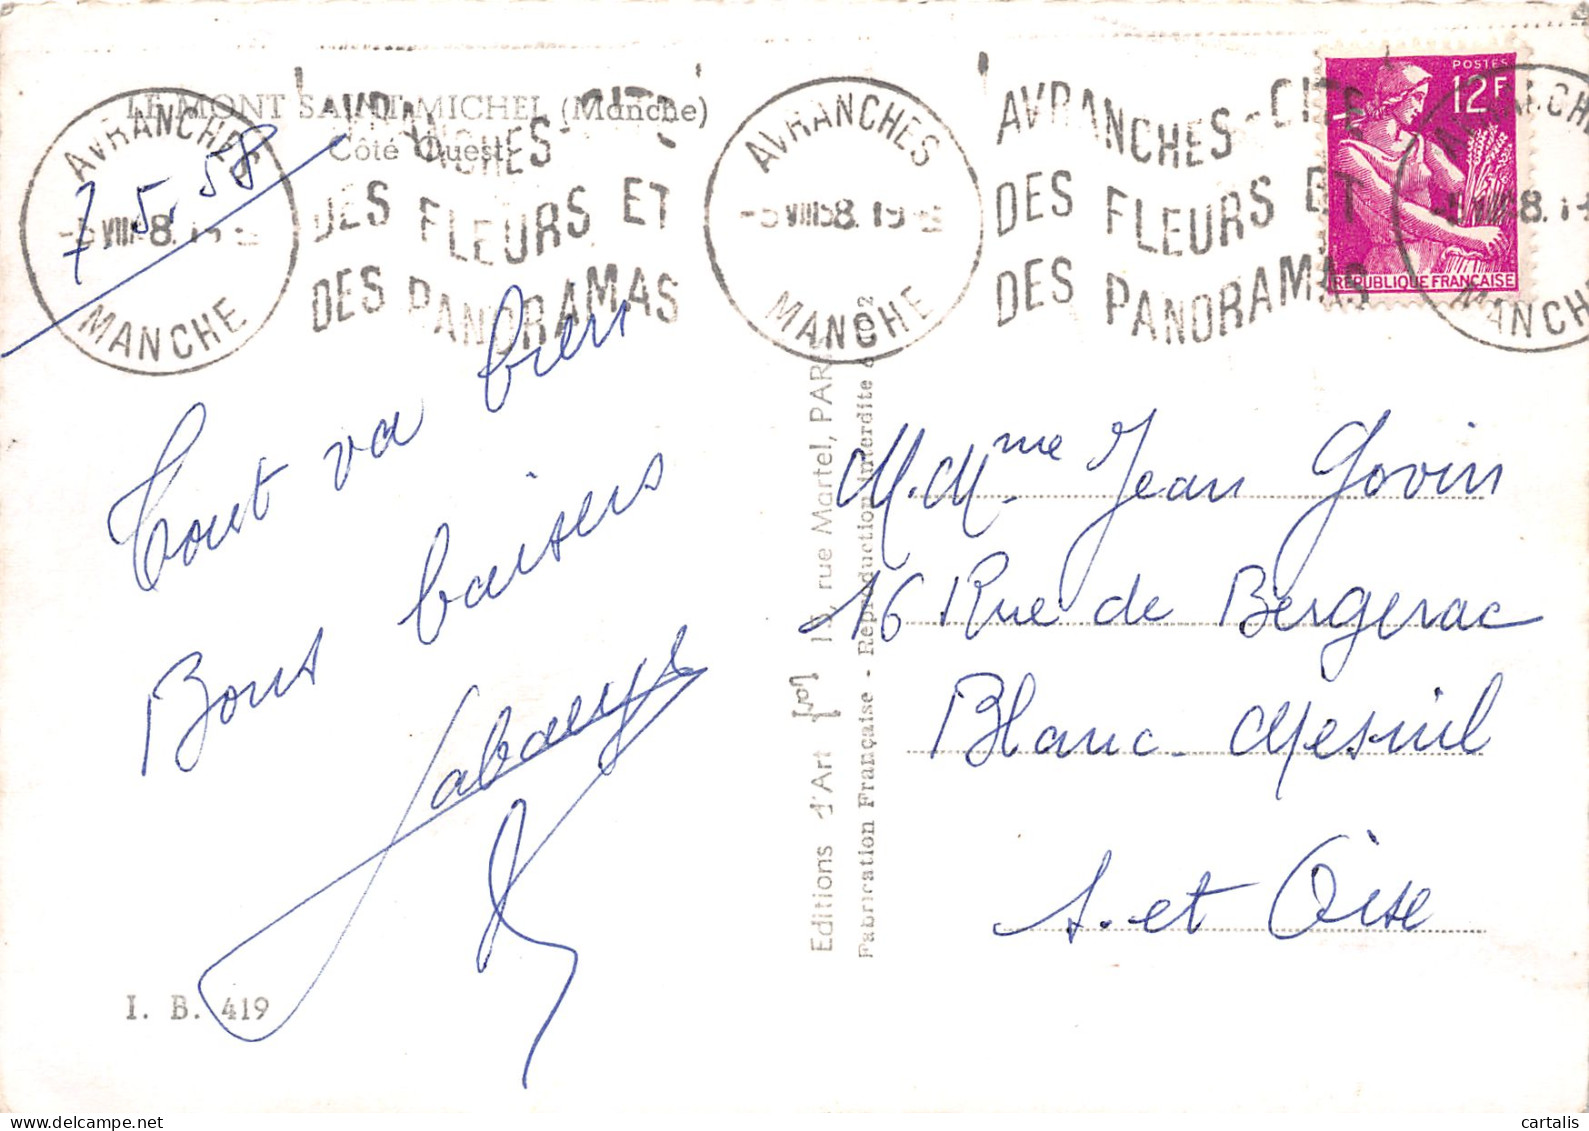 LE MONT SAINT-MICHEL (Manche)
Côté Ouest
7.5.58
AVRANCHES
MANCHE
AVRANCHES - CITE
DES FLEURS ET
DES PANORAMAS
AVRANCHES
-5 VIII 58. 19
MANCHE
AVRANCHES - CITE
DES FLEURS ET
DES PANORAMAS
POSTES
12F
REPUBLIQUE FRANÇAISE
AVRANCHES
MANCHE
Tout va bien
Bons baisers
I. B. 419
Editions d'Art 15, rue Martel, PAR
Fabrication Française - Reproduction interdite
M. Mme Jean Govin
16 Rue de Bergerac
Blanc-Mesnil
S. et Oise
cartalis